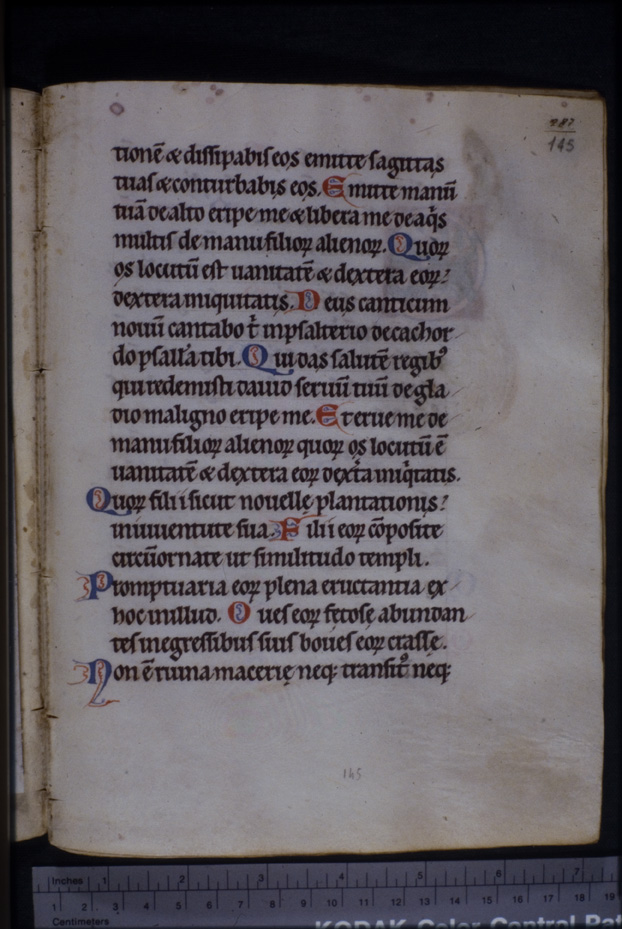 187
145
tionē & dissipabis eos emitte sagittas
tuas & conturbabis eos. Emitte manū
tuā de alto eripe me & libera me de aq̇s
multis de manu filioꝝ alienoꝝ. Quoꝝ
os locutū est uanitatē & dextera eoꝝ:
dextera iniquitatis. Deus canticum
nouū cantabo t̄ in psalterio decachor
do psallā tibi. Qui das salutē regib⁹
qui redemisti dauid seruū tuū de gla
dio maligno eripe me. Et erue me de
manu filioꝝ alienoꝝ quoꝝ os locutū ē
uanitatē & dextera eoꝝ dext̄a iniq̇tatis.
Quoꝝ filii sicut nouellę plantationis:
in iuuentute sua. Filii eoꝝ cōposite
circūornate ut similitudo templi.
Promptuaria eoꝝ plena eructantia ex
hoc in illud. Oues eoꝝ fetosę abundan
tes in egressibus suis boues eoꝝ crassę.
Non ē ruina macerię neq; transit⁹ neq;
145
Inches 1 2 3 4 5 6 7
1 2 3 4 5 6 7 8 9 10 11 12 13 14 15 16 17 18 19
Centimeters
KODAK Color Control Pat